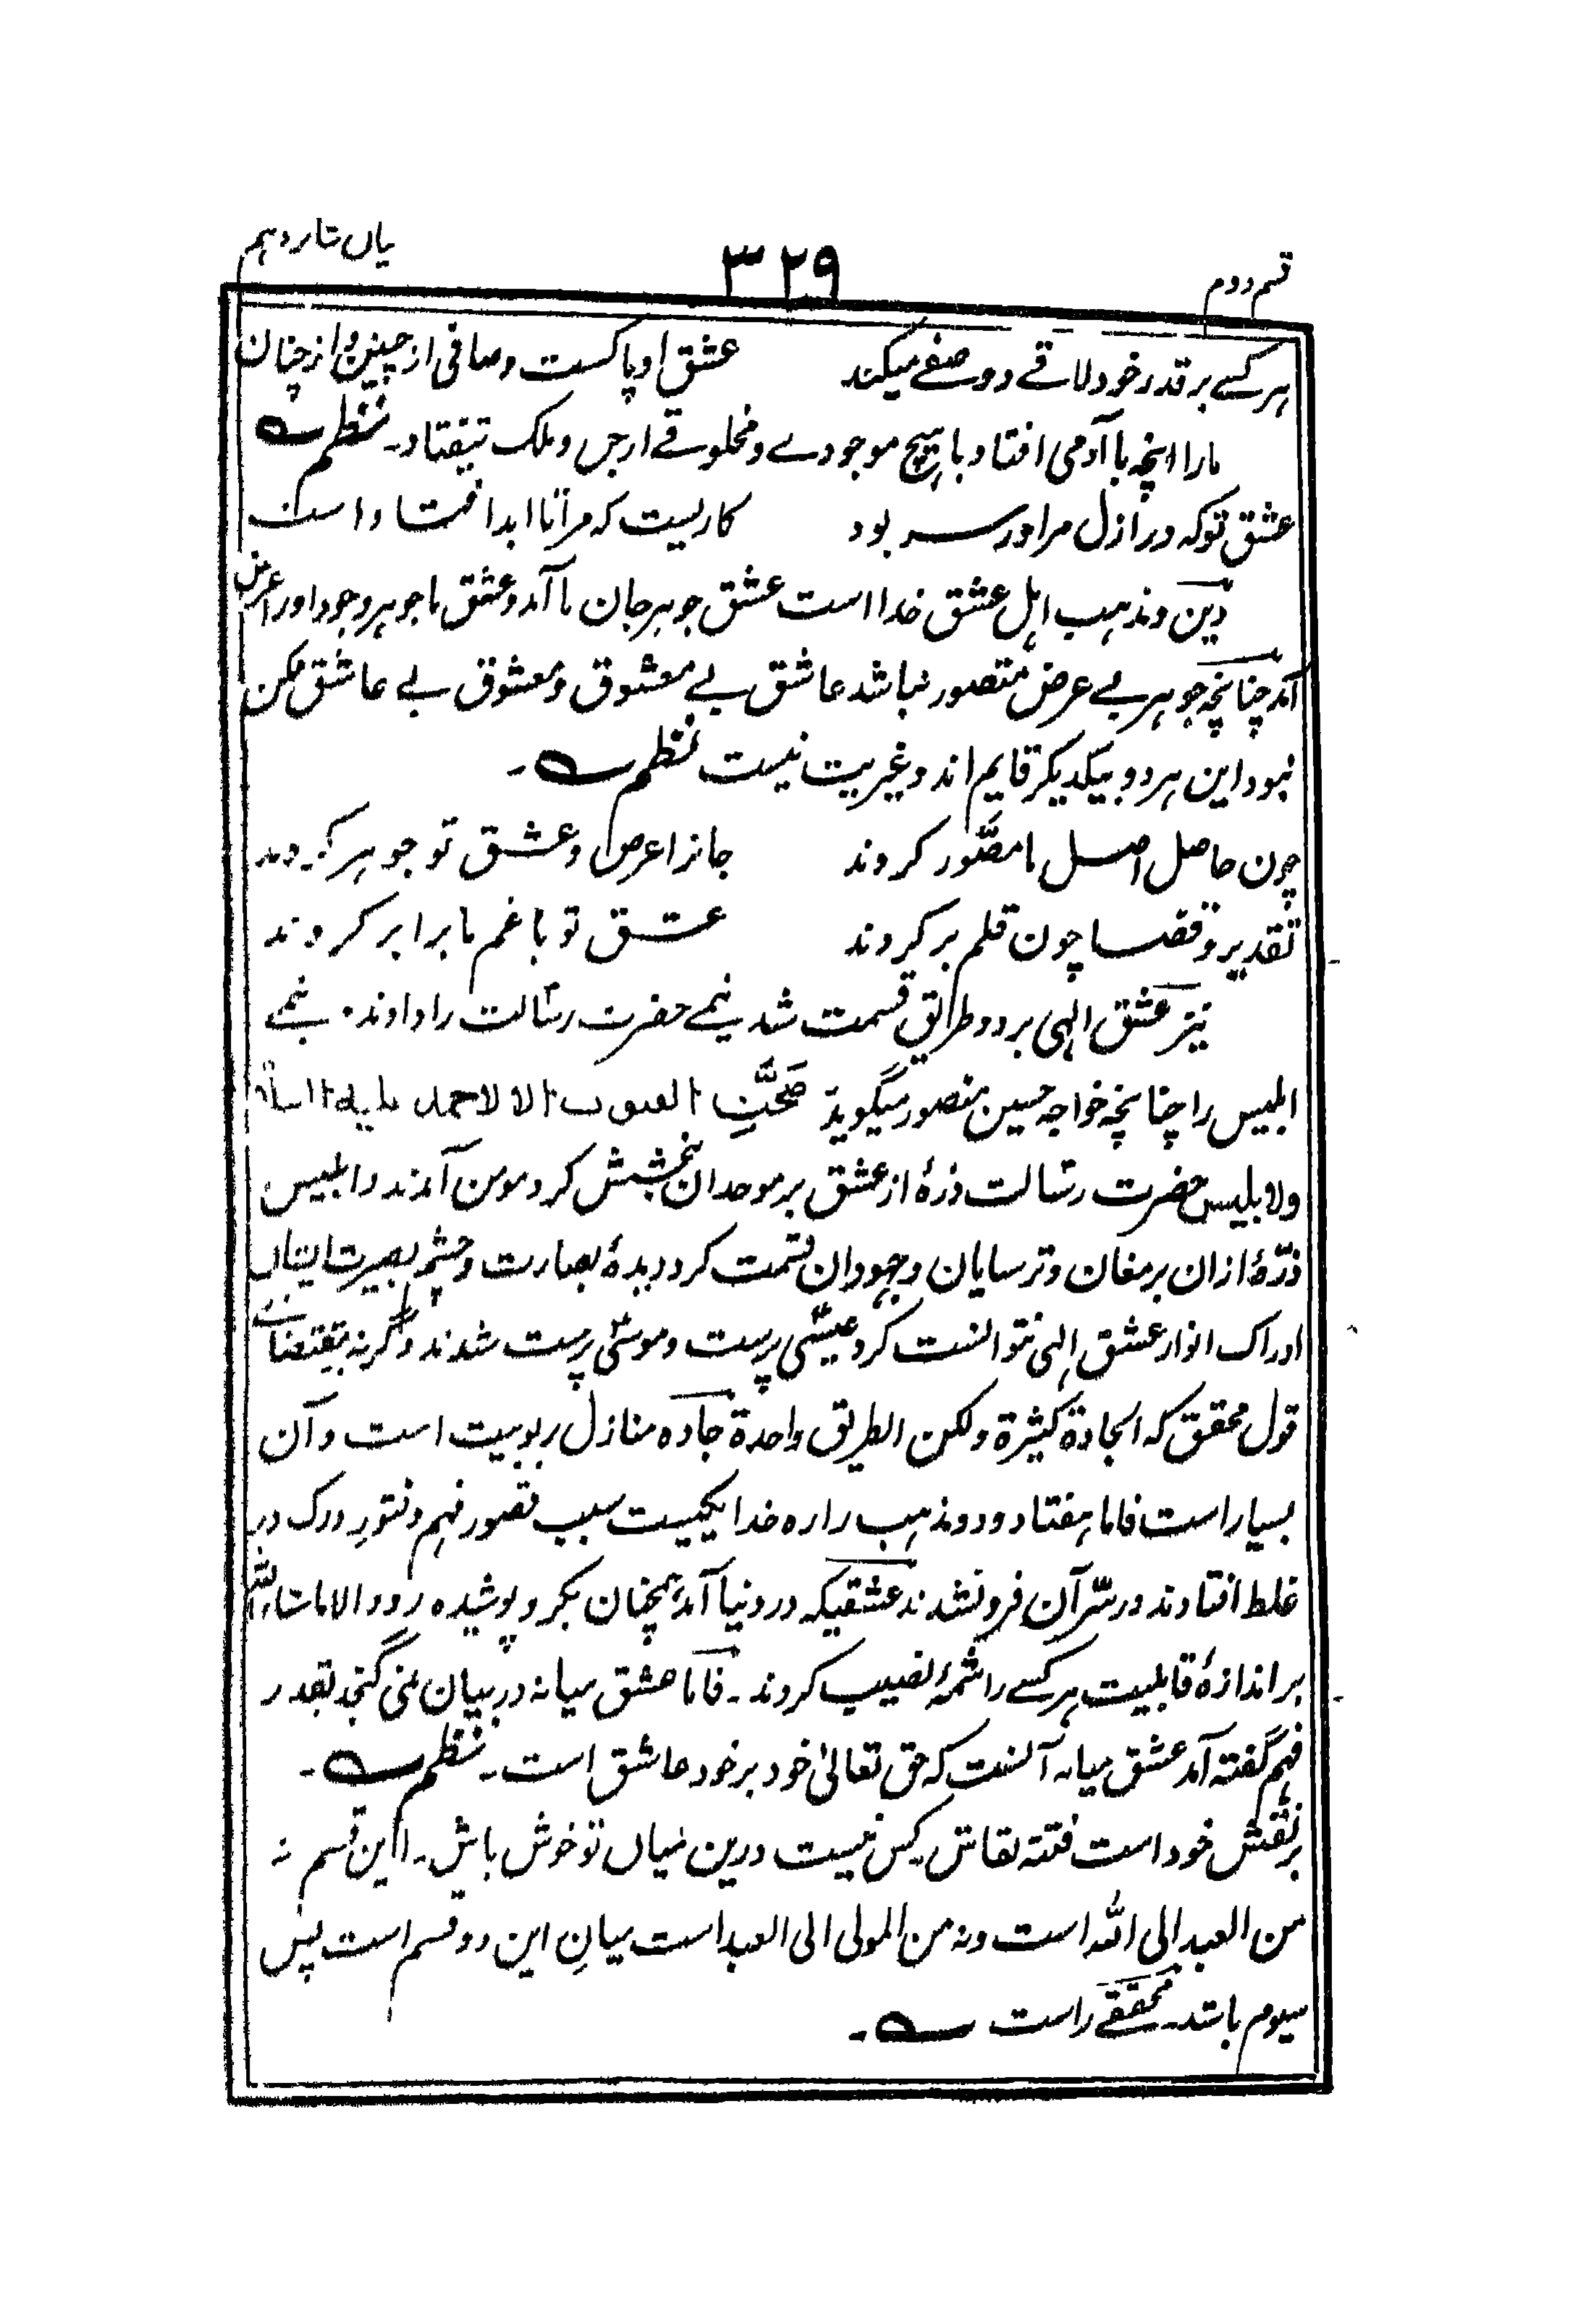 قسم دوم
۳۲۹
هر کسے بر قدر خود لاقے و وصفے میکند عشق او پاکست و صافی از چنین و از چنان
مارا انچه با آدمی افتاد با هیچ موجودے و مخلوقے از جن و ملک نیفتاد۔ نظم
عشق تو که در ازل مرا در سر بود کاریست که مر آنا ابد افتاد است
دین و مذهب اهل عشق خدا است عشق جوهر جان ما آمد و عشق ما جوهر وجود اورا عرض
آمد چنانچه جوهر بے عرض متصور نباشد عاشق بے معشوق و معشوق بے عاشق ممکن
نبود این هر دو بیکدیگر قایم اند و غیریت نیست نظم ـ
چون حاصل اصل ما مصّور کردند جانرا عرض و عشق تو جوهر کردند
تقدیر و قضا چون قلم بر کردند عشق تو با غم ما برابر کردند
نیز عشق الهی بر دو طریق قسمت شد نیمے حضرت رسالت را دادند۔ نیمے
ابلیس را چنانچه خواجه حسین منصور میگوید صَحَّتِ الا لاحمد
ولابلیس حضرت رسالت ذرهٔ از عشق بر موحدان بخشش کرد مومن آمدند و ابلیس
ذرّهٔ ازان بر مغان و ترسایان و جهودان قسمت کرد دیدهٔ بصارت و چشم بصیرت ایشان
ادراک انوار عشق الهی نتوانست کرد عیسٰی پرست و موسٰی پرست شدند و گرنه بمقتضاے
قول محقق که الجادة کثیرة ولکن الطریق واحدة جاده منازل ربوبیت است و آن
بسیار است فاما هفتاد و دو مذهب را راه خدا یکیست سبب قصور فهم و فتورِ درک در
غلط افتادند در سّر آن فرو نشدند عشقیکه در دنیا آمد همچنان بکر و پوشیده رود الا ماشاءالله
بر اندازهٔ قابلیت هر کسے را شمهٔ نصیب کردند۔ فاما عشق میانه در بیان نمی گنجد بقدر
فهم گفته آمد عشق میانه آنست که حق تعالیٰ خود بر خود عاشق است۔ نظم ـ
بر نقش خود است فتنه نقاش کس نیست درین میان تو خوش باش۔ این قسم نه
من العبد الی الله است و نه من المولی الی العبد است میانِ این دو قسم است پس
سیوم باشد۔ محققے راست ـ